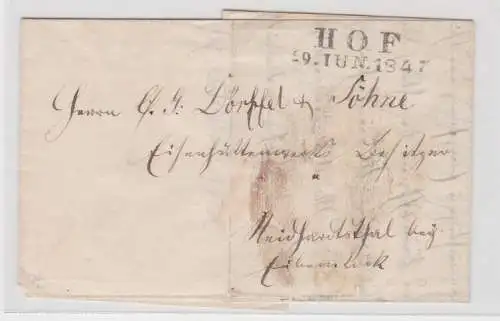 HOF
29. IUN. 1847
Herrn C. G. Dörffel & Söhne
Eisenhüttenwerks Besitzer
Neidhardtsthal bey
Eibenstock